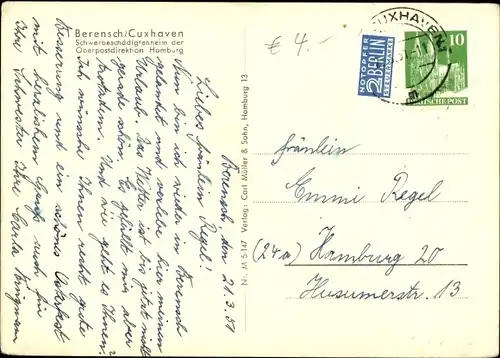 Berensch/Cuxhaven
Schwerbeschädigtenheim der
Oberpostdirektion Hamburg
Berensch den 21.3.51
Liebes Fräulein Regel!
Nun bin ich wieder in Berensch
gelandet und verlebe hier meinen
Urlaub. Das Wetter ist bis jetzt nicht
gerade schön. Es gefällt mir aber
trotzdem. Und wie geht es Ihnen?
Ich wünsche Ihnen recht gute
Besserung und ein schönes Osterfest
mit herzlichem Gruß auch für
Ihre Schwester Ihre Carla
Nr. M 5147 Verlag: Carl Müller & Sohn, Hamburg 13
€ 4.-
NOTOPFER
2 BERLIN
STEUERMARKE
CUXHAVEN
10
DEUTSCHE POST
Fräulein
Emmi Regel
(24a) Hamburg 20
Husumerstr. 13